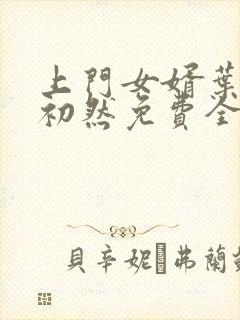 上門女婿葉
初然免費全
貝辛妮 弗蘭